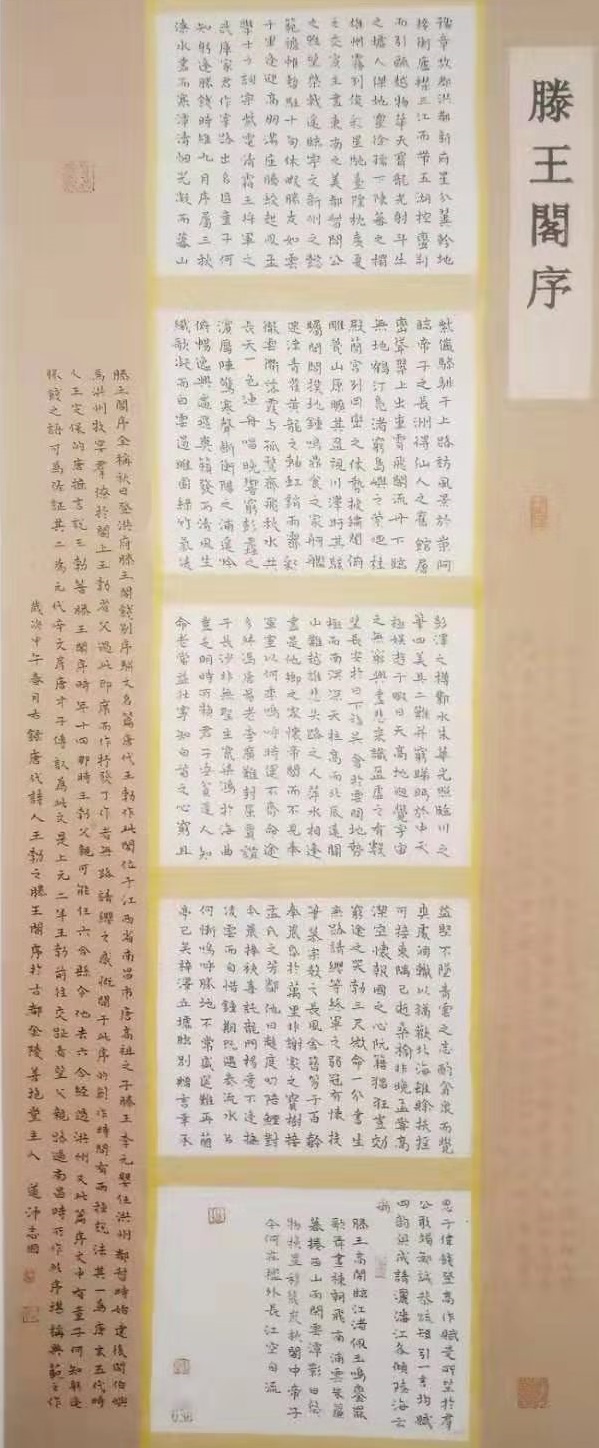 滕王閣序
豫章故郡洪都新府星分翼軫地
接衡廬襟三江而帶五湖控蠻荆
而引甌越物華天寶龍光射斗牛
之墟人傑地靈徐孺下陳蕃之榻
雄州霧列俊采星馳臺隍枕夷夏
之交賓主盡東南之美都督閻公
之雅望棨戟遥臨宇文新州之懿
範襜帷暫駐十旬休暇勝友如雲
千里逢迎高朋滿座騰蛟起鳳孟
學士之詞宗紫電清霜王將軍之
武庫家君作宰路出名區童子何
知躬逢勝餞時維九月序屬三秋
潦水盡而寒潭清烟光凝而暮山
紫儼驂騑于上路訪風景於崇阿
臨帝子之長洲得仙人之舊館層
巒聳翠上出重霄飛閣流丹下臨
無地鶴汀鳧渚窮島嶼之縈迴桂
殿蘭宮列岡巒之体勢披繡闥俯
雕甍山原曠其盈視川澤盱其駭
矚閭閻撲地鐘鳴鼎食之家舸艦
迷津青雀黄龍之軸虹銷雨霽彩
徹雲衢落霞与孤鶩齊飛秋水共
長天一色漁舟唱晚響窮彭蠡之
濱雁陣驚寒聲斷衡陽之浦遥吟
俯暢逸興遄飛爽籟發而清風生
纖歌凝而白雲遏睢園緑竹氣凌
彭澤之樽鄴水朱華光照臨川之
筆四美具二難并窮睇眄於中天
極娱游于暇日天高地迥覺宇宙
之無窮興盡悲來識盈虚之有數
望長安於日下指吴會於雲間地勢
極而南溟深天柱高而北辰遠關
山難越誰悲失路之人萍水相逢
盡是他鄉之客懷帝閽而不見奉
宣室以何年嗚呼時運不齊命途
多舛馮唐易老李廣難封屈賈誼
于長沙非無聖主竄梁鴻於海曲
豈乏明時所賴君子安貧達人知
命老當益壯寧知白首之心窮且
益堅不墜青雲之志酌貪泉而覺
爽處涸轍以猶歡北海雖賒扶摇
可接東隅已逝桑榆非晚孟嘗高
潔空懷報國之心阮籍猖狂豈效
窮途之哭勃三尺微命一介書生
無路請纓等終軍之弱冠有懷投
筆慕宗慤之長風舍簪笏于百齡
奉晨昏於萬里非謝家之寶樹接
孟氏之芳鄰他日趨庭叨陪鯉對
今晨捧袂喜託龍門楊意不逢撫
凌雲而自惜鍾期既遇奏流水以
何慚嗚呼勝地不常盛筵難再蘭
亭已矣梓澤丘墟臨别贈言幸承
恩于偉餞登高作賦是所望於羣
公敢竭鄙誠恭疏短引一言均賦
四韵俱成請灑潘江各傾陸海云
爾
滕王高閣臨江渚佩玉鳴鸞罷
歌舞畫棟朝飛南浦雲朱簾
暮捲西山雨閒雲潭影日悠
物換星移幾度秋閣中帝子
今何在檻外長江空自流
036
滕王閣序全稱秋日登洪府滕王閣餞别序駢文名篇唐代王勃作此閣位于江西省南昌市唐高祖之子滕王李元嬰任洪州都督時始建後閻伯嶼
爲洪州牧宴羣僚於閣上王勃省父過此即席而作抒發了作者無路請纓之感慨關于此序的創作時間有兩種說法其一爲唐末五代時
人王定保的唐摭言說王勃著滕王閣序時年十四那時王勃父親可能任六合縣令他去六合經過洪州又此篇序文中有童子何知躬逢
勝餞之語可爲佐証其二爲元代辛文房唐才子傳認爲此文是上元二年王勃前往交趾看望父親路過南昌時所作此序堪稱典範之作
歲次甲午春月古錄唐代詩人王勃之滕王閣序於古都金陵善抱堂主人